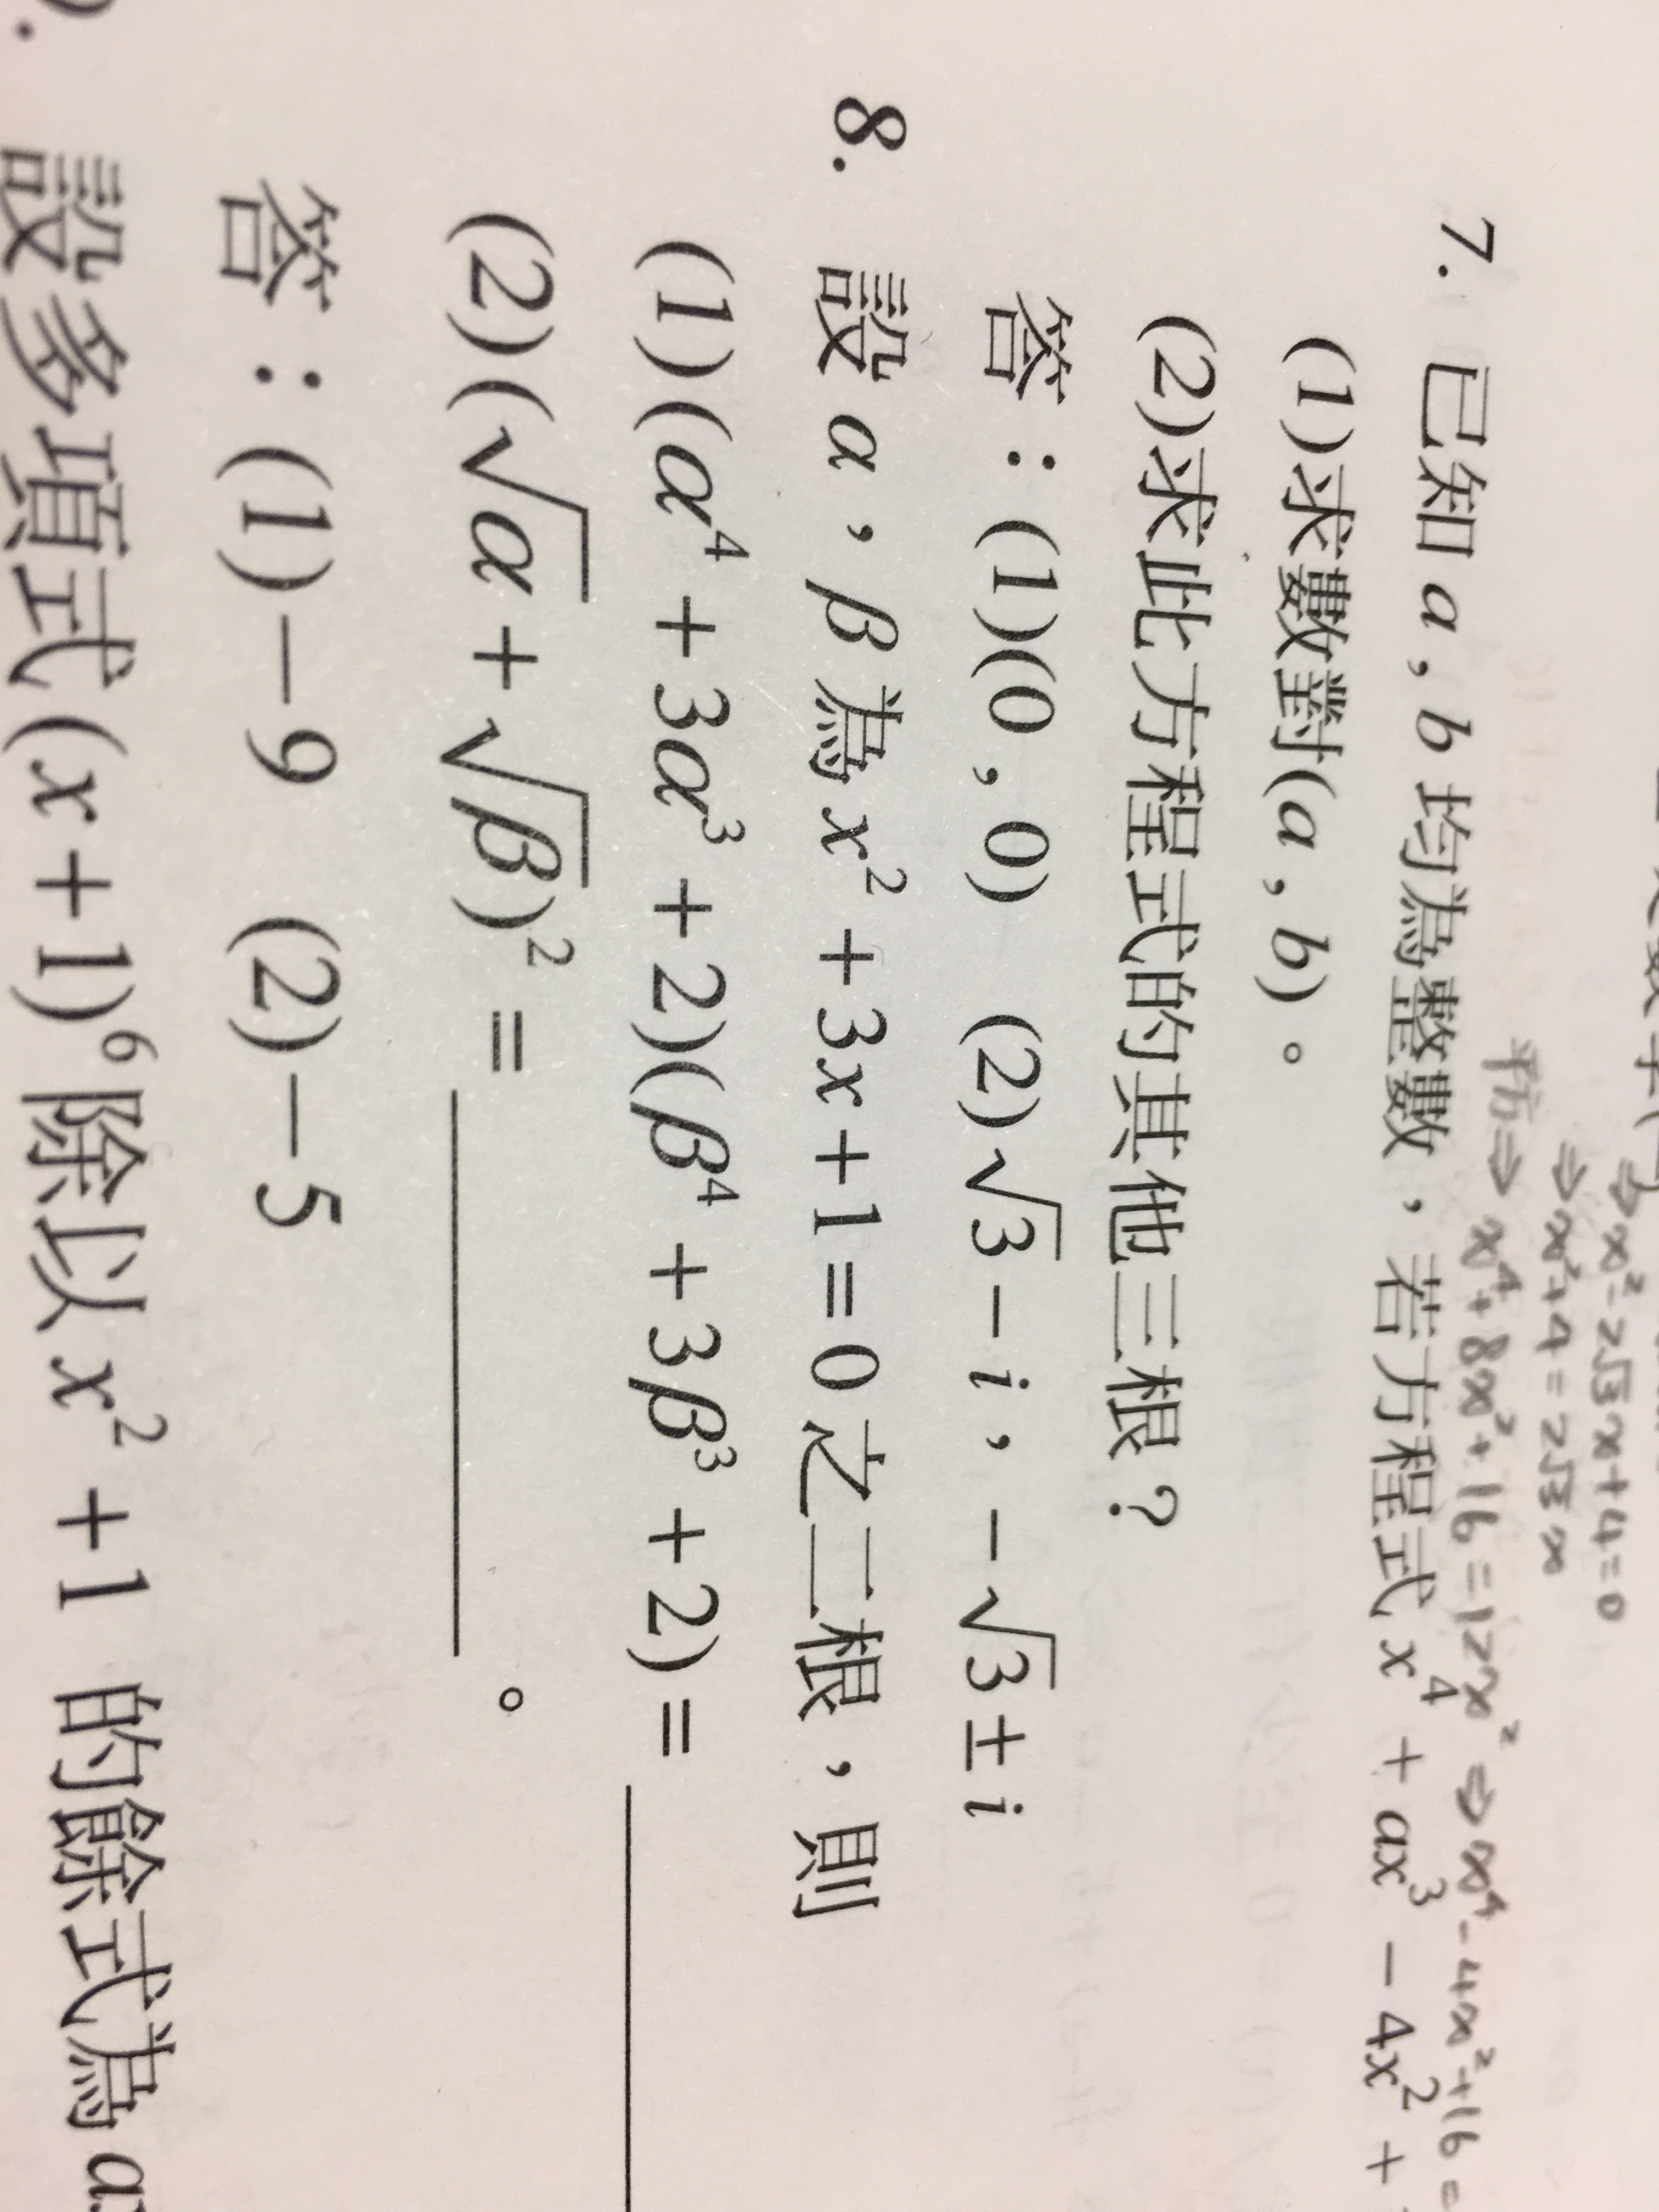 ⇒x²-2√3x+4=0
⇒x²+4=2√3x
平方⇒x⁴+8x²+16=12x²⇒x⁴-4x²+16=
7. 已知 a , b 均為整數，若方程式 x⁴ + ax³ − 4x² +
(1)求數對(a , b)。
(2)求此方程式的其他三根？
答：(1)(0 , 0) (2)√3 − i，−√3 ± i
8. 設 α，β 為 x² + 3x + 1 = 0 之二根，則
(1)(α⁴ + 3α³ + 2)(β⁴ + 3β³ + 2) = ______
(2)(√α + √β)² = ______。
答：(1) − 9 (2) − 5
設多項式 (x + 1)⁶ 除以 x² + 1 的餘式為 ax